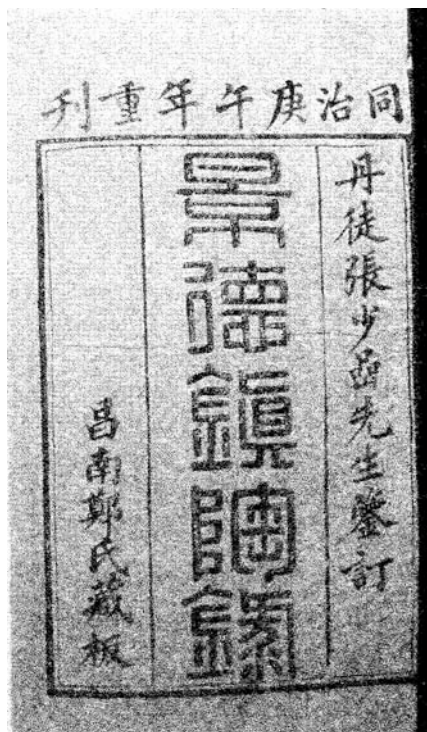 同治庚午年重刊
丹徒張少函先生鑒訂
景德鎮陶錄
昌南鄭氏藏板